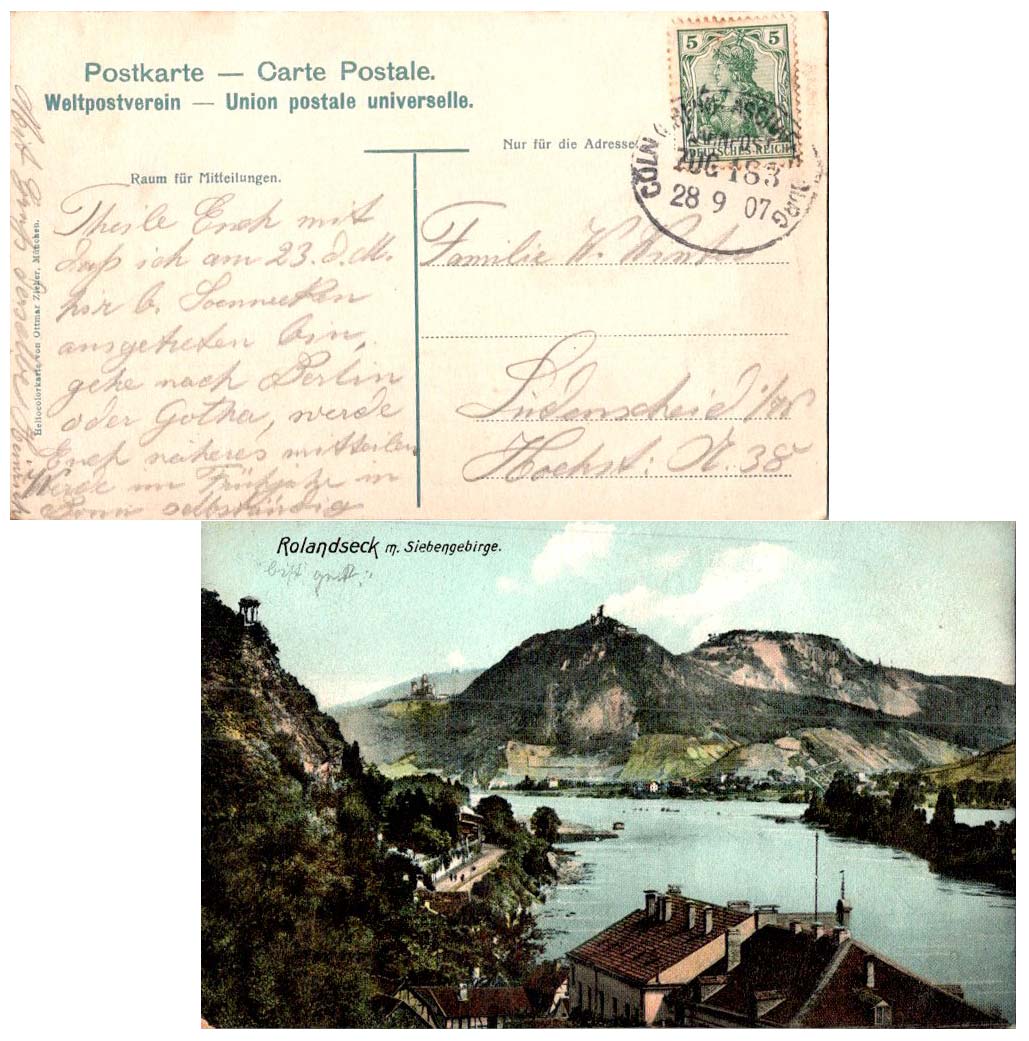 Postkarte — Carte Postale.
Weltpostverein — Union postale universelle.
Nur für die Adresse
Raum für Mitteilungen.
5 5
DEUTSCHES REICH
CÖLN
ZUG 183
28 9 07
Theile Euch mit
daß ich am 23. d. M.
hir b. Soennecken
ausgetreten bin,
gehe nach Berlin
oder Gotha, werde
Euch näheres mitteilen
Werde im Frühjahr in
Bonn selbständig
Familie W. Winter
Lüdenscheid i/W
Hochst: N. 38
Heliocolorkarte von Ottmar Zieher, München.
Rolandseck m. Siebengebirge.